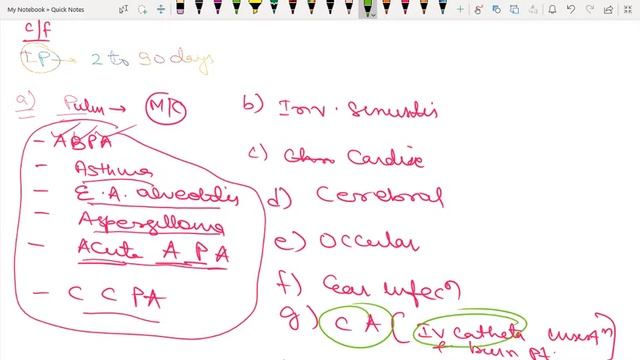 My Notebook » Quick Notes
c/f
IP → 2 to 90 days
a) Pulm → M/C
- ABPA
- Asthma
- E.A. alveolitis
- Aspergilloma
- Acute A P A
- C C PA
b) Inv. Sinusitis
c) Cardiac
d) Cerebral
e) Occular
f) Ear infecⁿ
g) C A ( IV Catheter
& burn pt.